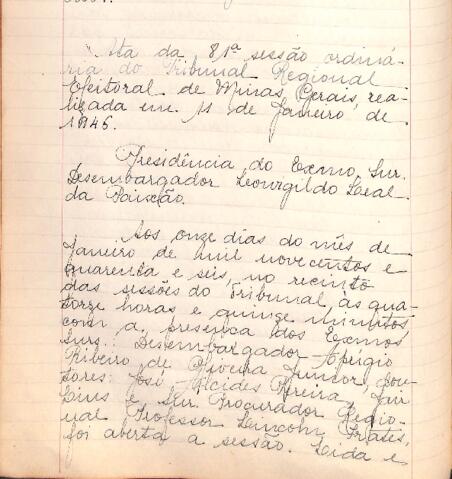 Ata da 81ª sessão ordiná-
ria do Tribunal Regional
Eleitoral de Minas Gerais, rea-
lizada em 11 de Janeiro de
1946.
Presidência do Exmo. Snr.
Desembargador Leovigildo Leal
da Paixão.
Aos onze dias do mês de
Janeiro de mil novecentos e
quarenta e seis, no recinto
das sessões do Tribunal, às qua-
torze horas e quinze minutos,
com a presença dos Exmos
Snrs. Desembargador Aprigio
Ribeiro de Oliveira Junior, Dou-
tores: José Alcides Pereira,
e Snr. Procurador Regio-
nal Professor Lincoln Prates,
foi aberta a sessão. Lida e